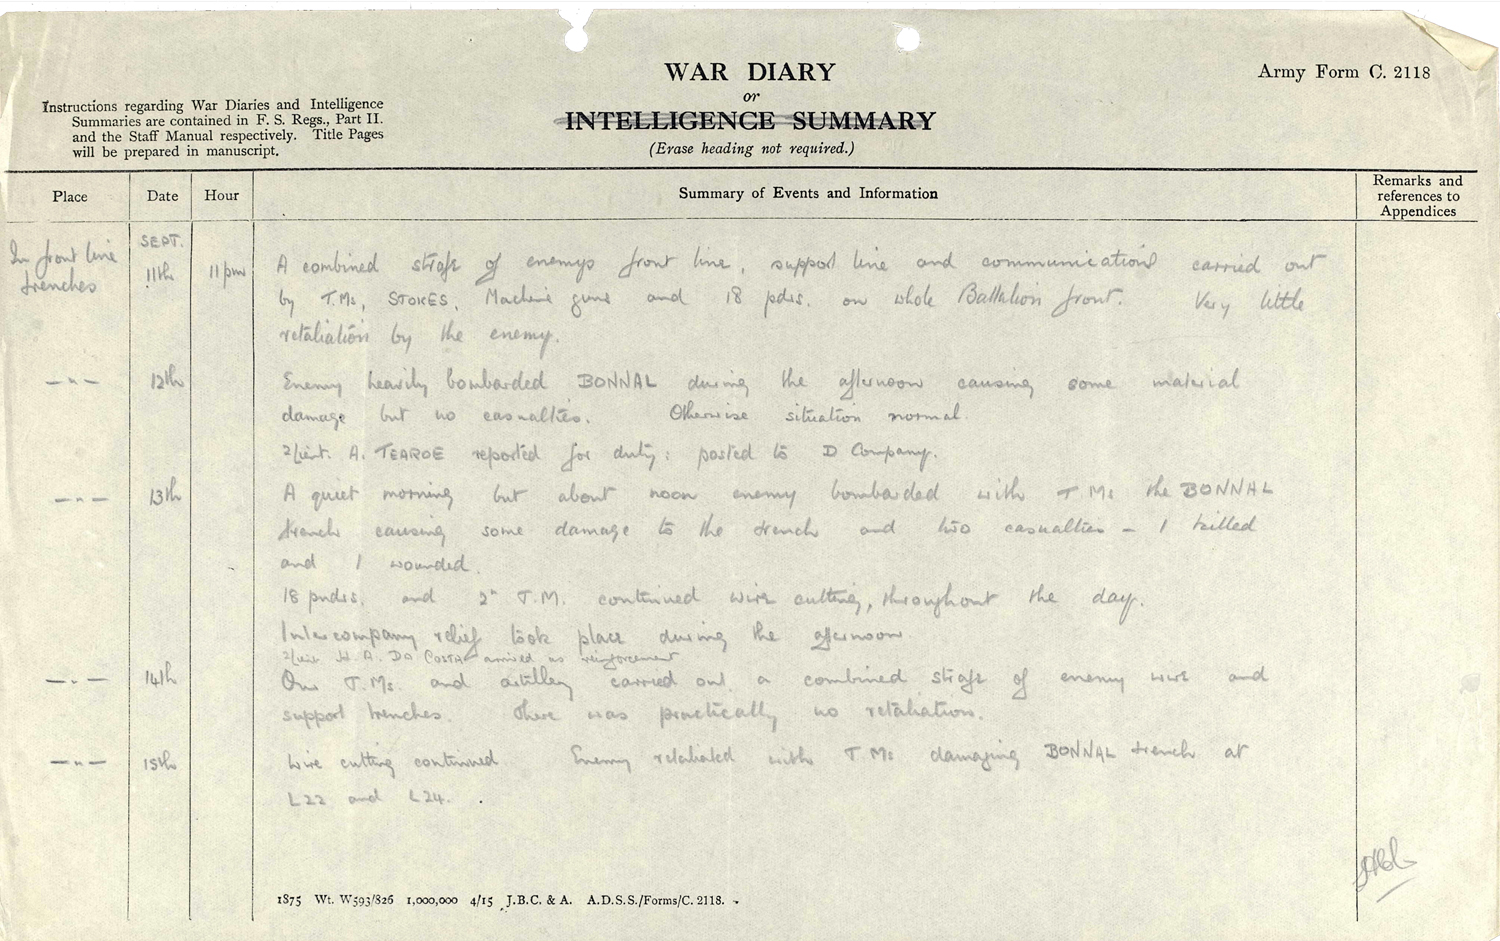 WAR DIARY
or
INTELLIGENCE SUMMARY
(Erase heading not required.)
Army Form C. 2118
Instructions regarding War Diaries and Intelligence
Summaries are contained in F. S. Regs., Part II.
and the Staff Manual respectively. Title Pages
will be prepared in manuscript.
Place
Date
Hour
Summary of Events and Information
Remarks and
references to
Appendices
In front line
trenches
SEPT.
11th
11pm
A combined strafe of enemys front line, support line and communications carried out
by T.Ms, STOKES, Machine guns and 18 pdrs. on whole Battalion front. Very little
retaliation by the enemy.
— " —
12th
Enemy heavily bombarded BONNAL during the afternoon causing some material
damage but no casualties. Otherwise situation normal.
2/Lieut. A. TEAROE reported for duty: posted to D Company.
— " —
13th
A quiet morning but about noon enemy bombarded with T.Ms the BONNAL
trench causing some damage to the trench and two casualties - 1 killed
and 1 wounded.
18 pndrs. and 2" T.M. continued wire cutting, throughout the day.
Intercompany relief took place during the afternoon
2/Lieut H. A. DA COSTA arrived as reinforcement
— " —
14th
Our T.Ms. and artillery carried out a combined strafe of enemy wire and
support trenches. There was practically no retaliation.
— " —
15th
Wire cutting continued Enemy retaliated with T.Ms damaging BONNAL trench at
L22 and L24.
1875 Wt. W593/826 1,000,000 4/15 J.B.C. & A. A.D.S.S./Forms/C. 2118.